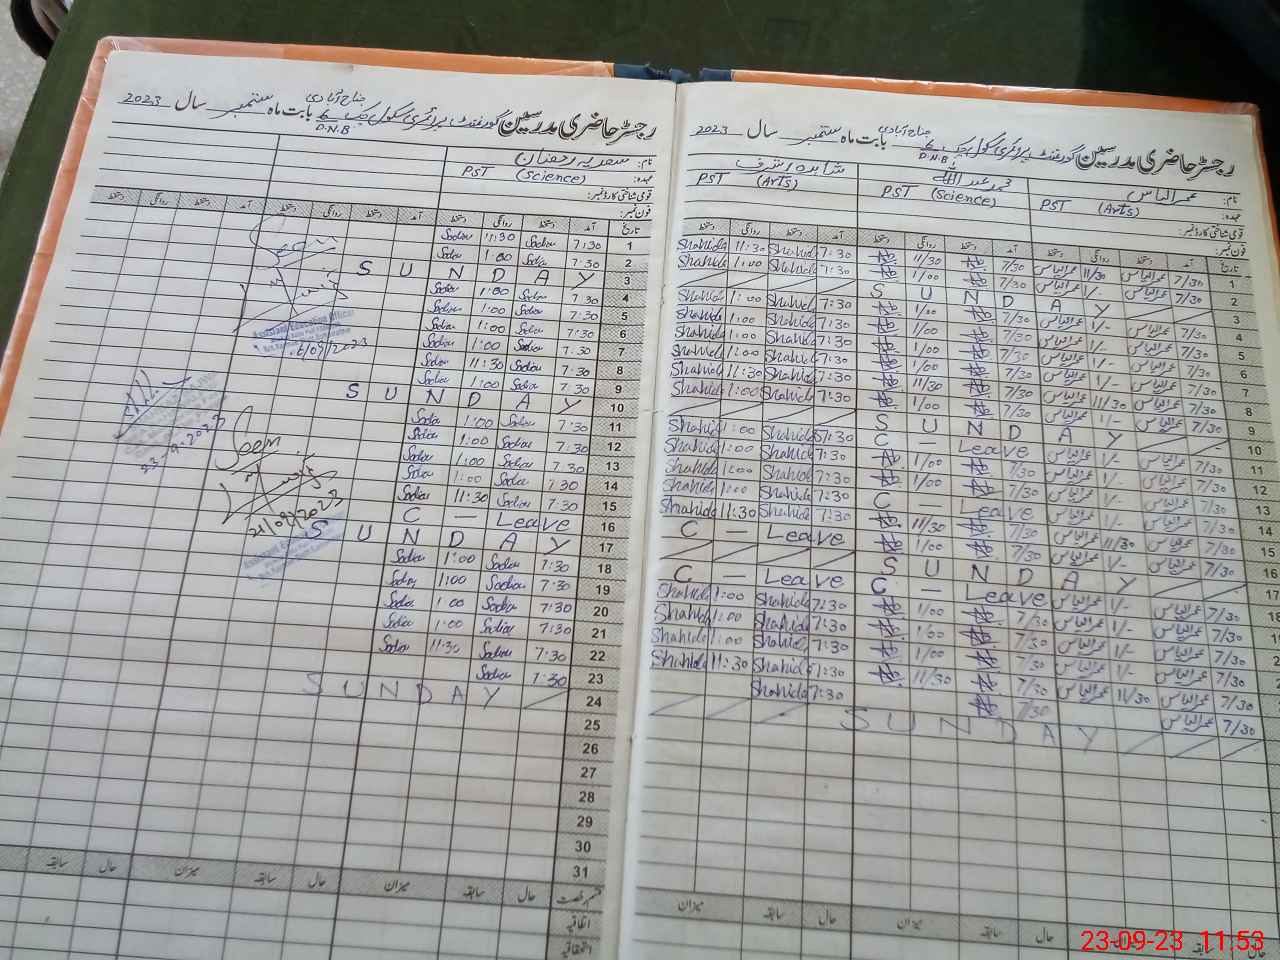 رجسٹر حاضری مدرسین گورنمنٹ پرائمری سکول چک 6 D.N.B جناح آبادی بابت ماہ ستمبر سال 2023
نام: سعدیہ رحمان
عہدہ: PST (Science)
قومی شناختی کارڈ نمبر:
فون نمبر:
تاریخ آمد دستخط روانگی دستخط آمد دستخط روانگی دستخط آمد دستخط روانگی دستخط
1 7:30 Sadia 11:30 Sadia
2 7:30 Sadia 1:00 Sadia
3 SUNDAY
4 7:30 Sadia 1:00 Sadia
5 7:30 Sadia 1:00 Sadia
6 7:30 Sadia 1:00 Sadia
7 7:30 Sadia 1:00 Sadia
8 7:30 Sadia 11:30 Sadia
9 7:30 Sadia 1:00 Sadia
10 SUNDAY
11 7:30 Sadia 1:00 Sadia
12 7:30 Sadia 1:00 Sadia
13 7:30 Sadia 1:00 Sadia
14 7:30 Sadia 1:00 Sadia
15 7:30 Sadia 11:30 Sadia
16 C – Leave
17 SUNDAY
18 7:30 Sadia 1:00 Sadia
19 7:30 Sadia 1:00 Sadia
20 7:30 Sadia 1:00 Sadia
21 7:30 Sadia 1:00 Sadia
22 7:30 Sadia 11:30 Sadia
23 7:30 Sadia
24 SUNDAY
25
26
27
28
29
30
31
Seen
Assistant Education Officer
16/09/2023
23-9-2023
Seen
21/09/2023
قسم رخصت حال سابقہ میزان حال سابقہ میزان حال سابقہ
اتفاقیہ
استحقاقیہ
رجسٹر حاضری مدرسین گورنمنٹ پرائمری سکول چک 6 D.N.B جناح آبادی بابت ماہ ستمبر سال 2023
نام: عمر الیاس محمد عبداللہ شاہدہ اشرف
عہدہ: PST (Arts) PST (Science) PST (Arts)
قومی شناختی کارڈ نمبر:
فون نمبر:
تاریخ آمد دستخط روانگی دستخط آمد دستخط روانگی دستخط آمد دستخط روانگی دستخط
1 7/30 عمر الیاس 11/30 عمر الیاس 7/30 11/30 7:30 Shahida 11:30 Shahida
2 7/30 عمر الیاس 1/- عمر الیاس 7/30 1/00 7:30 Shahida 1:00 Shahida
3 SUNDAY
4 7/30 عمر الیاس 1/- عمر الیاس 7/30 1/00 7:30 Shahida 1:00 Shahida
5 7/30 عمر الیاس 1/- عمر الیاس 7/30 1/00 7:30 Shahida 1:00 Shahida
6 7/30 عمر الیاس 1/- عمر الیاس 7/30 1/00 7:30 Shahida 1:00 Shahida
7 7/30 عمر الیاس 1/- عمر الیاس 7/30 1/00 7:30 Shahida 1:00 Shahida
8 7/30 عمر الیاس 11/30 عمر الیاس 7/30 11/30 7:30 Shahida 11:30 Shahida
9 7/30 عمر الیاس 1/- عمر الیاس 7/30 1/00 7:30 Shahida 1:00 Shahida
10 SUNDAY
11 7/30 عمر الیاس 1/- عمر الیاس C – Leave 7:30 Shahida 1:00 Shahida
12 7/30 عمر الیاس 1/- عمر الیاس 7/30 1/00 7:30 Shahida 1:00 Shahida
13 7/30 عمر الیاس 1/- عمر الیاس 7/30 1/00 7:30 Shahida 1:00 Shahida
14 7/30 عمر الیاس 1/- عمر الیاس C – Leave 7:30 Shahida 1:00 Shahida
15 7/30 عمر الیاس 11/30 عمر الیاس 7/30 11/30 7:30 Shahida 11:30 Shahida
16 7/30 عمر الیاس 1/- عمر الیاس 7/30 1/00 C – Leave
17 SUNDAY
18 7/30 عمر الیاس 1/- عمر الیاس C – Leave C – Leave
7/30 عمر الیاس 1/- عمر الیاس 7/30 1/00 7:30 Shahida 1:00 Shahida
7/30 عمر الیاس 1/- عمر الیاس 7/30 1/00 7:30 Shahida 1:00 Shahida
7/30 عمر الیاس 1/- عمر الیاس 7/30 1/00 7:30 Shahida 1:00 Shahida
7/30 عمر الیاس 11/30 عمر الیاس 7/30 11/30 7:30 Shahida 11:30 Shahida
7/30 عمر الیاس 7/30 7:30 Shahida
SUNDAY
حال سابقہ میزان حال سابقہ میزان
23-09-23 11:53